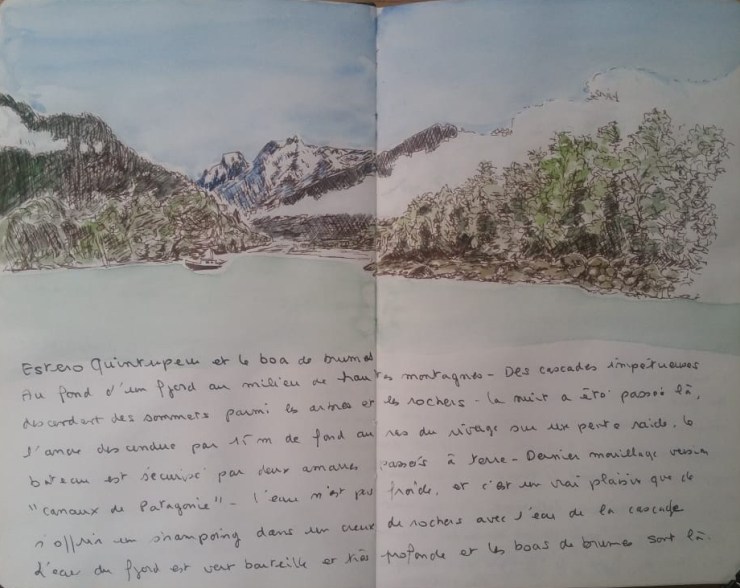 Estero Quintupeu et le boa de brumes
Au fond d'un fjord au milieu de hautes montagnes - Des cascades impétueuses
descendent des sommets parmi les arbres et les rochers - La nuit a été passée là,
l'ancre descendue par 15 m de fond au ras du rivage sur une pente raide, le
bateau est sécurisé par deux amarres passées à terre - Dernier mouillage version
"canaux de Patagonie" - L'eau n'est pas froide, et c'est un vrai plaisir que de
s'offrir un shampoing dans un creux de rochers avec l'eau de la cascade
L'eau du fjord est vert bouteille et très profonde et les boas de brumes sont là.